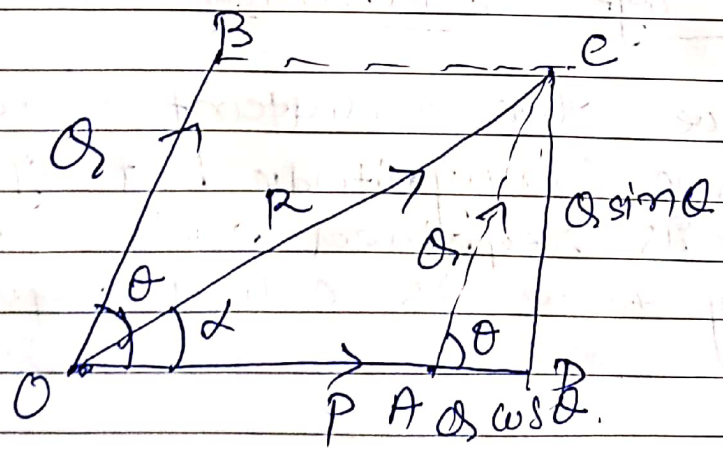 B C
Q
R Q Q sinθ
θ α θ
O P A Q cosθ D